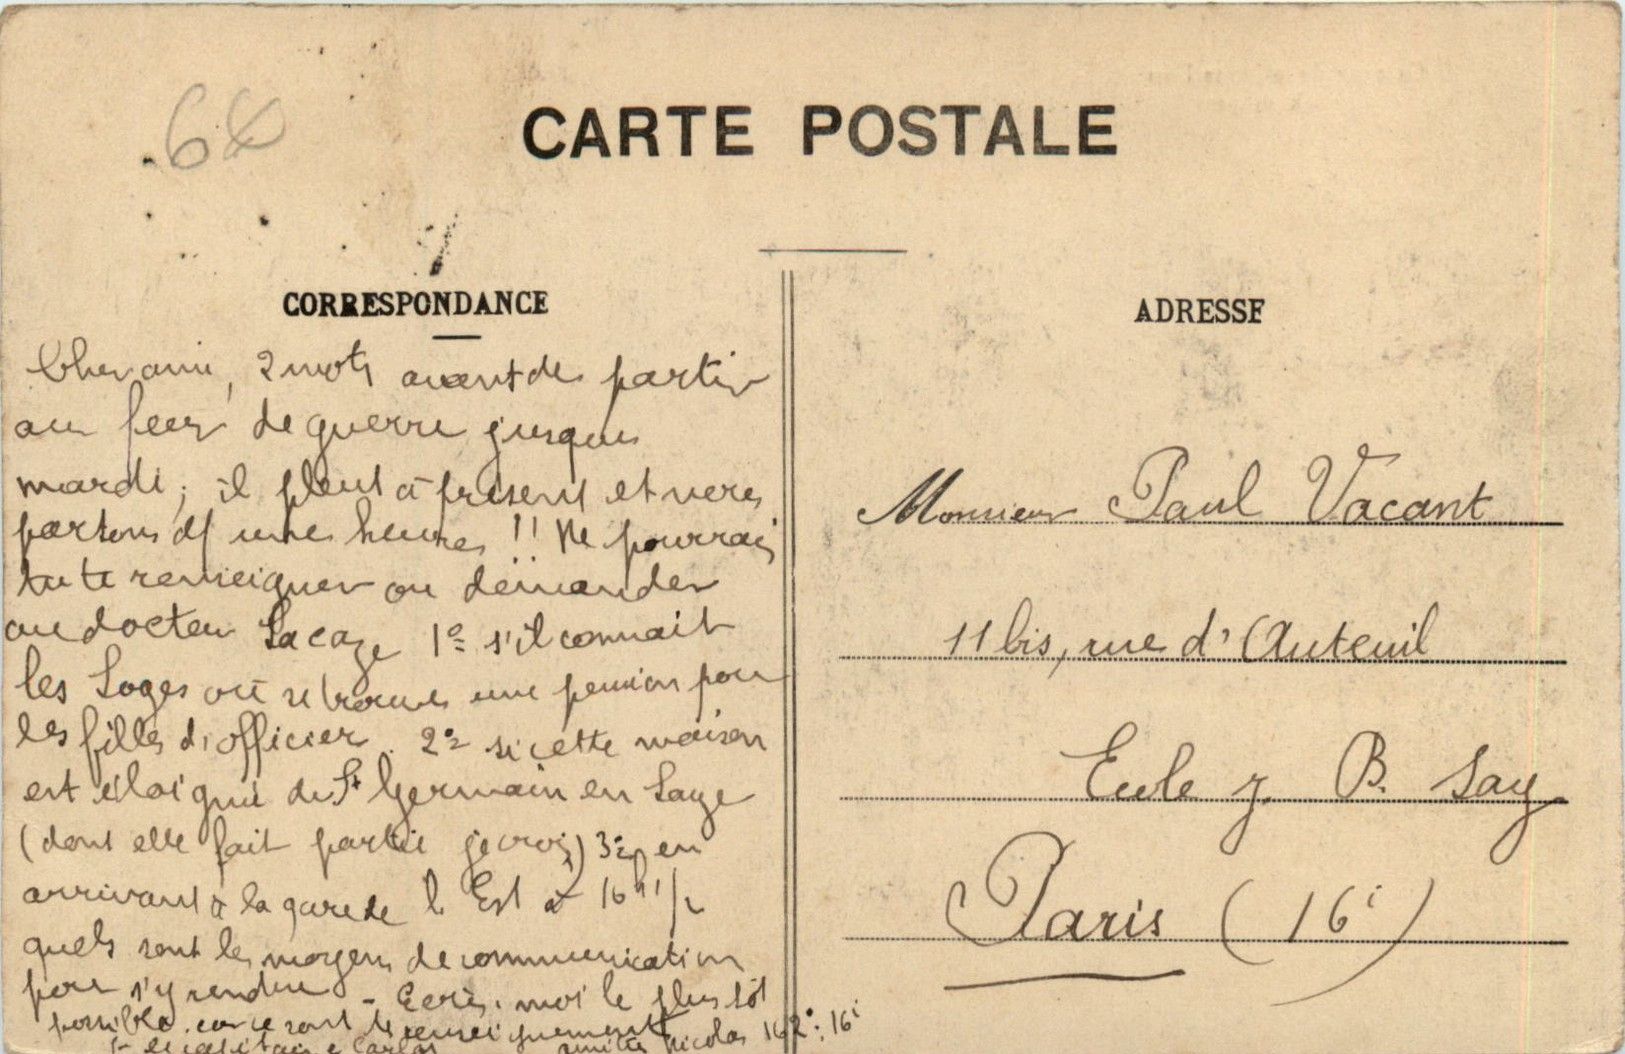 6
CARTE POSTALE
CORRESPONDANCE
Cher ami, 2 mots avant de partir
au feu de guerre jusque
mardi; il pleut à présent et nous
partons ds une heure !! Ne pourrais
tu te renseigner ou demander
au docteur Lacaze 1º s'il connait
les Loges où se trouve une pension pour
les filles d'officier. 2º si cette maison
est éloigné de St Germain en Laye
(dont elle fait partie je crois) 3º en
arrivant à la gare de l'Est à 16h 1/2
quels sont les moyens de communication
pour s'y rendre - Ecris-moi le plus tôt
possible. car ce sont des renseignements
amitiés Nicolas 162e: 16e
ADRESSE
Monsieur Paul Vacant
11 bis, rue d'Auteuil
Ecole J. B. Say
Paris (16e)